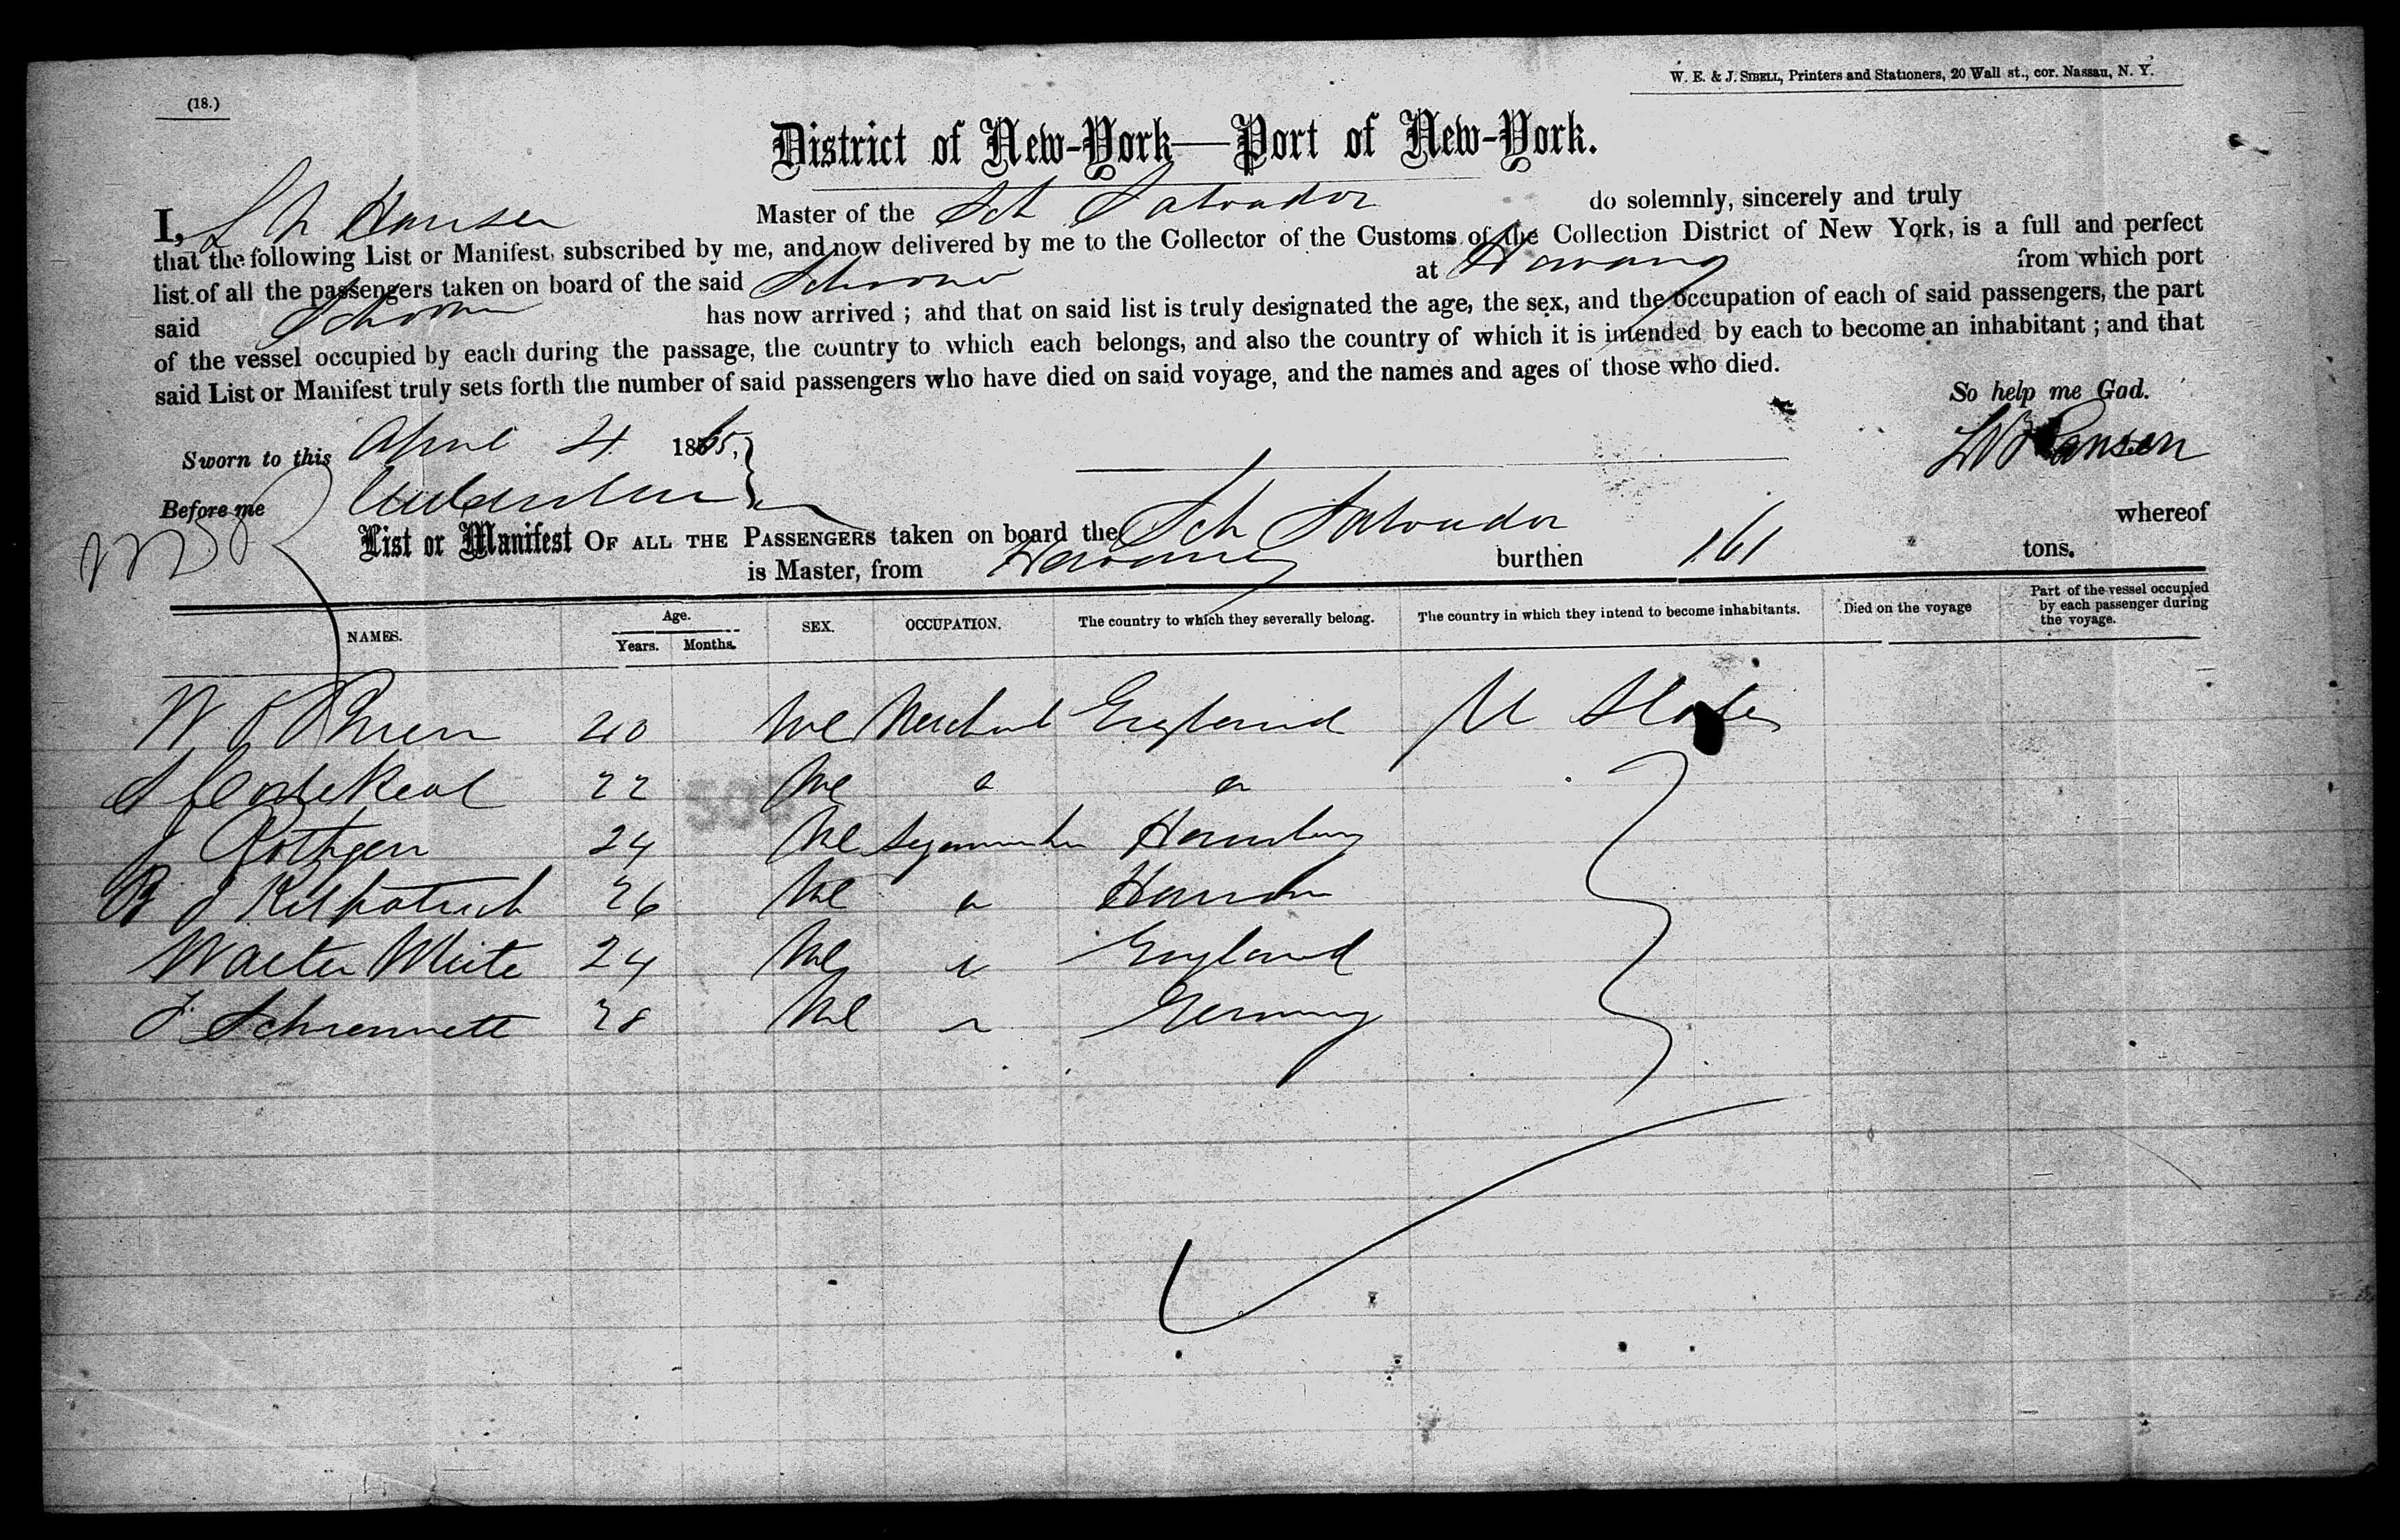 (18.)
W. E. & J. SIBELL, Printers and Stationers, 20 Wall st., cor. Nassau, N. Y.
District of New-York—Port of New-York.
I, Hansen Master of the Sch Salvador do solemnly, sincerely and truly
that the following List or Manifest, subscribed by me, and now delivered by me to the Collector of the Customs of the Collection District of New York, is a full and perfect
list of all the passengers taken on board of the said Schooner at Havana from which port
said Schooner has now arrived ; and that on said list is truly designated the age, the sex, and the occupation of each of said passengers, the part
of the vessel occupied by each during the passage, the country to which each belongs, and also the country of which it is intended by each to become an inhabitant ; and that
said List or Manifest truly sets forth the number of said passengers who have died on said voyage, and the names and ages of those who died.
So help me God.
Sworn to this April 4 1865,
Hansen
Before me
List or Manifest OF ALL THE PASSENGERS taken on board the Sch Salvador whereof
is Master, from Havana burthen 161 tons.
NAMES. Age. Years. Months. SEX. OCCUPATION. The country to which they severally belong. The country in which they intend to become inhabitants. Died on the voyage Part of the vessel occupied by each passenger during the voyage.
W O Brien 40 Ml Merchant England U States
22 Ml
J Rottgen 24 Ml Hamburg
B J Kilpatrick 26 Ml
Walter White 24 Ml England
28 Ml Germany